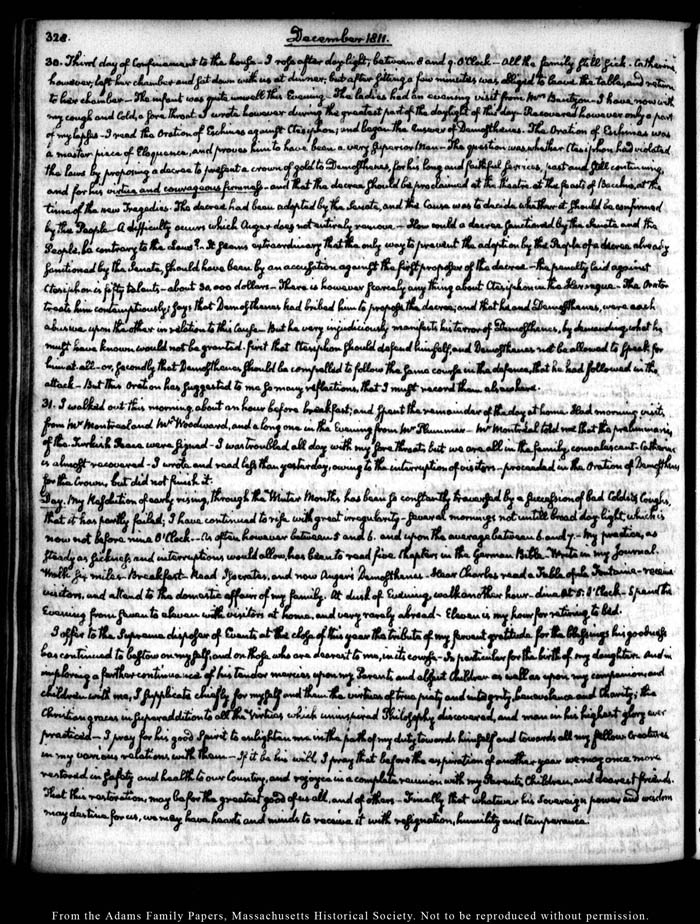 328.
December 1811.
30. Third day of Confinement to the house - I rose after day light, between 8 and 9. O'Clock - All the family still sick. Catherine,
however, left her chamber and sat down with us at dinner; but after sitting a few minutes was obliged to leave the table, and return
to her chamber - The infant was quite unwell this Evening - The ladies had an evening visit from Mrs Bentzon - I have now with
my cough and Cold, a sore throat I wrote however during the greatest part of the daylight of this day - Recovered however only a part
of my lapses - I read the Oration of Eschines against Ctesiphon; and began the answer of Demosthenes. The Oration of Eschines was
a master piece of Eloquence, and proves him to have been a very Superior Man - The question was whether Ctesiphon had violated
the laws by proposing a decree to present a crown of gold to Demosthenes, for his long and faithful services, past and still continuing,
and for his virtue and courageous firmness - and that the decree should be proclaimed at the theatre at the feasts of Bacchus, at the
time of the new Tragedies. The decree had been adopted by the Senate, and the Cause was to decide whether it should be confirmed
by the People - A difficulty occurs which Auger does not entirely remove - How could a decree sanctioned by the Senate and the
People, be contrary to the Laws? - It seems extraordinary that the only way to prevent the adoption by the People of a decree already
sanctioned by the Senate, should have been by an accusation against the first proposer of the decree - the penalty laid against
Ctesiphon is fifty talents - about 50,000 dollars - There is however scarcely any thing about Ctesiphon in the Harangue - The Orator
treats him contemptuously; says that Demosthenes had bribed him to propose the decree; and that he and Demosthenes, were each
abusive upon the other in relation to this Cause - But he very injudiciously manifests his terror of Demosthenes, by demanding what he
must have known would not be granted. first that Ctesiphon should defend himself, and Demosthenes not be allowed to speak for
him at all - or, secondly that Demosthenes should be compelled to follow the same course in the defence, that he had followed in the
attack - But this Oration has suggested to me so many reflections, that I must record them elsewhere.
31. I walked out this morning, about an hour before breakfast; and spent the remainder of the day at home. Had morning visits,
from Mr Montréal and Mr Woodward, and a long one in the Evening from Mr Plummer - Mr Montréal told me that the preliminaries
of the Turkish Peace were signed - I was troubled all day with my sore throat; but we are all in the family, convalescent. Catherine
is almost recovered - I wrote and read less than yesterday, owing to the interruption of visitors - proceeded in the Oration of Demosthenes
for the Crown; but did not finish it.
Day. My Resolution of early rising, through the Winter Months has been so constantly traversed by a succession of bad Colds & Coughs,
that it has partly failed; I have continued to rise with great irregularity - several mornings not untill broad day light, which is
now not before nine O'Clock - As often however between 5 and 6. and upon the average between 6 and 7 - My practice, as
steady as sickness and interruptions would allow, has been to read five Chapters in the German Bible - Write in my Journal.
Walk six miles - Breakfast - Read Isocrates, and now Auger's Demosthenes - Hear Charles read a Fable of La Fontaine - receive
visitors, and attend to the domestic affairs of my family. At dusk of Evening, walk another hour - dine at 5. O'Clock - Spend the
Evening from seven to eleven with visitors at home, and very rarely abroad - Eleven is my hour for retiring to bed.
I offer to the Supreme disposer of Events at the close of this year the tribute of my fervent gratitude for the blessings his goodness
has continued to bestow on myself, and on those who are dearest to me, in its course - In particular for the birth of my daughter. And in
imploring a further continuance of his tender mercies upon my Parents and absent Children as well as upon my companion, and
children with me, I supplicate chiefly for myself and them the virtues of true piety and integrity, benevolence and Charity; the
Christian graces in superaddition to all the Virtues which uninspired Philosophy discovered, and man in his highest glory ever
practiced - I pray for his good Spirit to enlighten me in the path of my duty towards himself and towards all my fellow creatures
in my various relations with them - If it be his will, I pray that before the expiration of another year we may once more
restored in safety and health to our Country, and rejoyce in a complete reunion with my Parents, Children, and dearest friends.
That this restoration, may be for the greatest good of us all, and of others - Finally that whatever his Sovereign power and wisdom
may destine for us, we may have hearts and minds to receive it with resignation, humility and temperance.
From the Adams Family Papers, Massachusetts Historical Society. Not to be reproduced without permission.